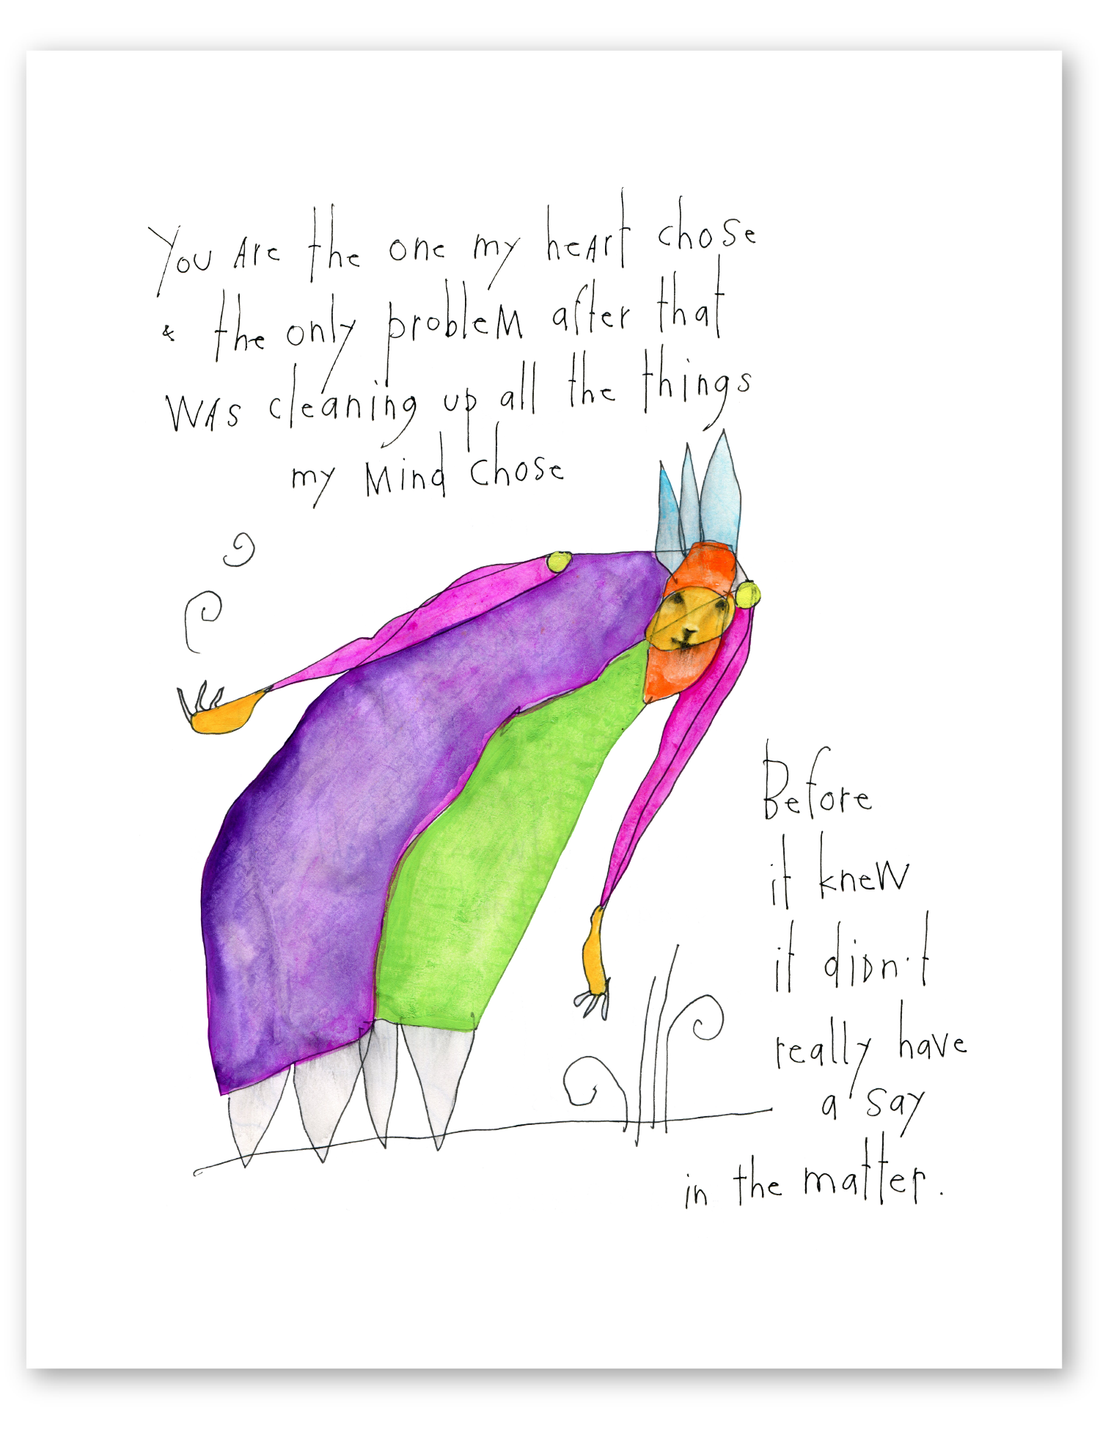 You are the one my heart chose
& the only problem after that
was cleaning up all the things
my mind chose
Before
it knew
it didn't
really have
a say
in the matter.